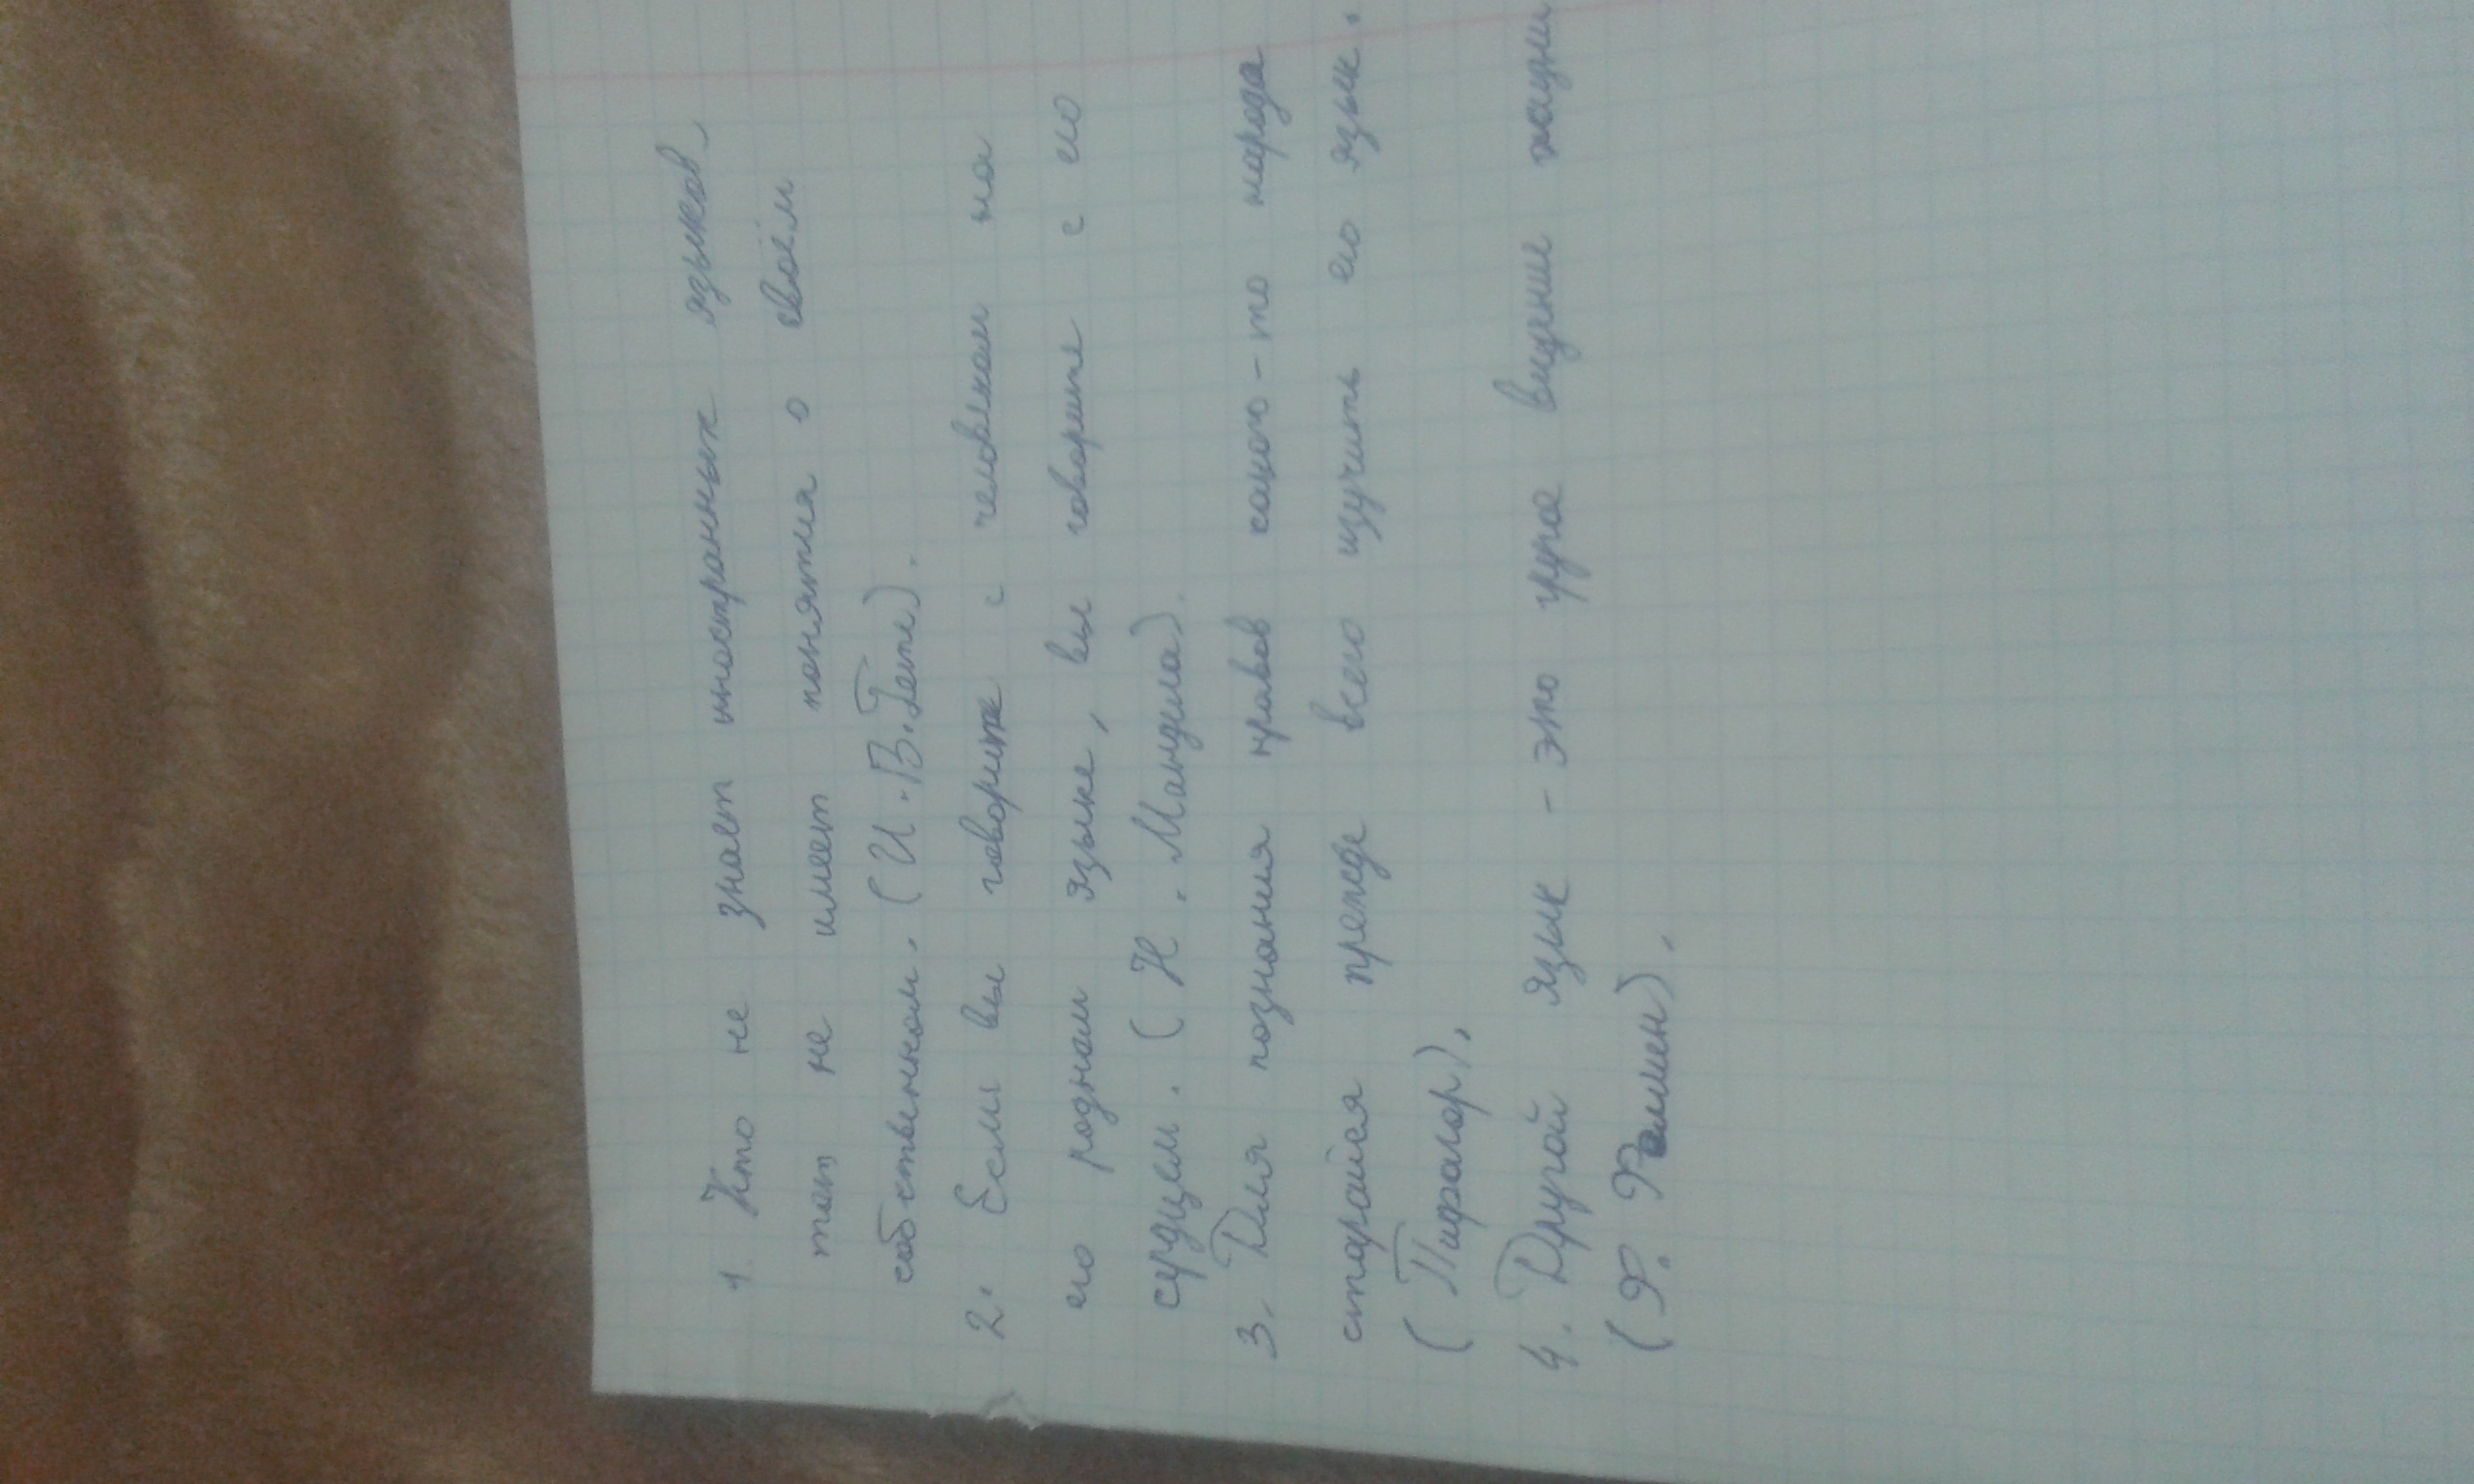 1. Кто не знает иностранных языков,
тот не имеет понятия о своём
собственном. (И.В.Гете).
2. Если вы говорите с человеком на
его родном языке, вы говорите с его
сердцем. (Н. Мандела).
3. Для познания нравов какого-то народа
старайся прежде всего изучить его язык.
(Пифагор).
4. Другой язык - это другое видение жизни
(Ф. Феллини).